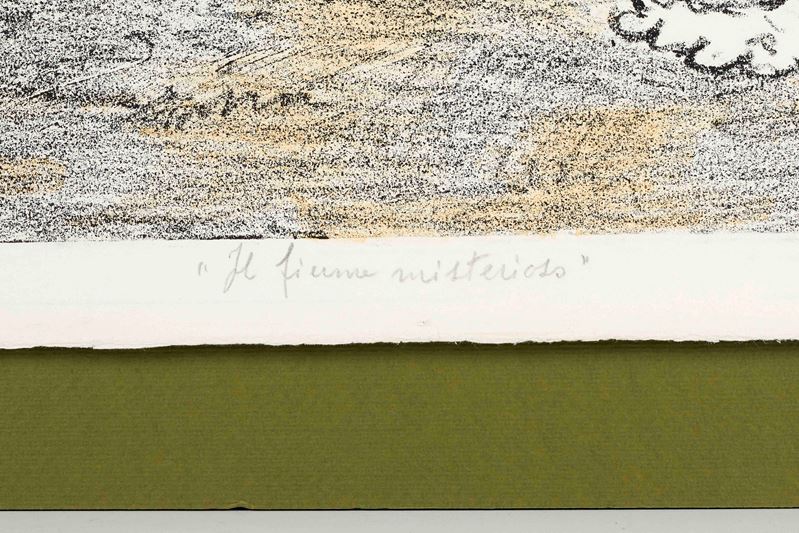 "Il fiume misterioso"